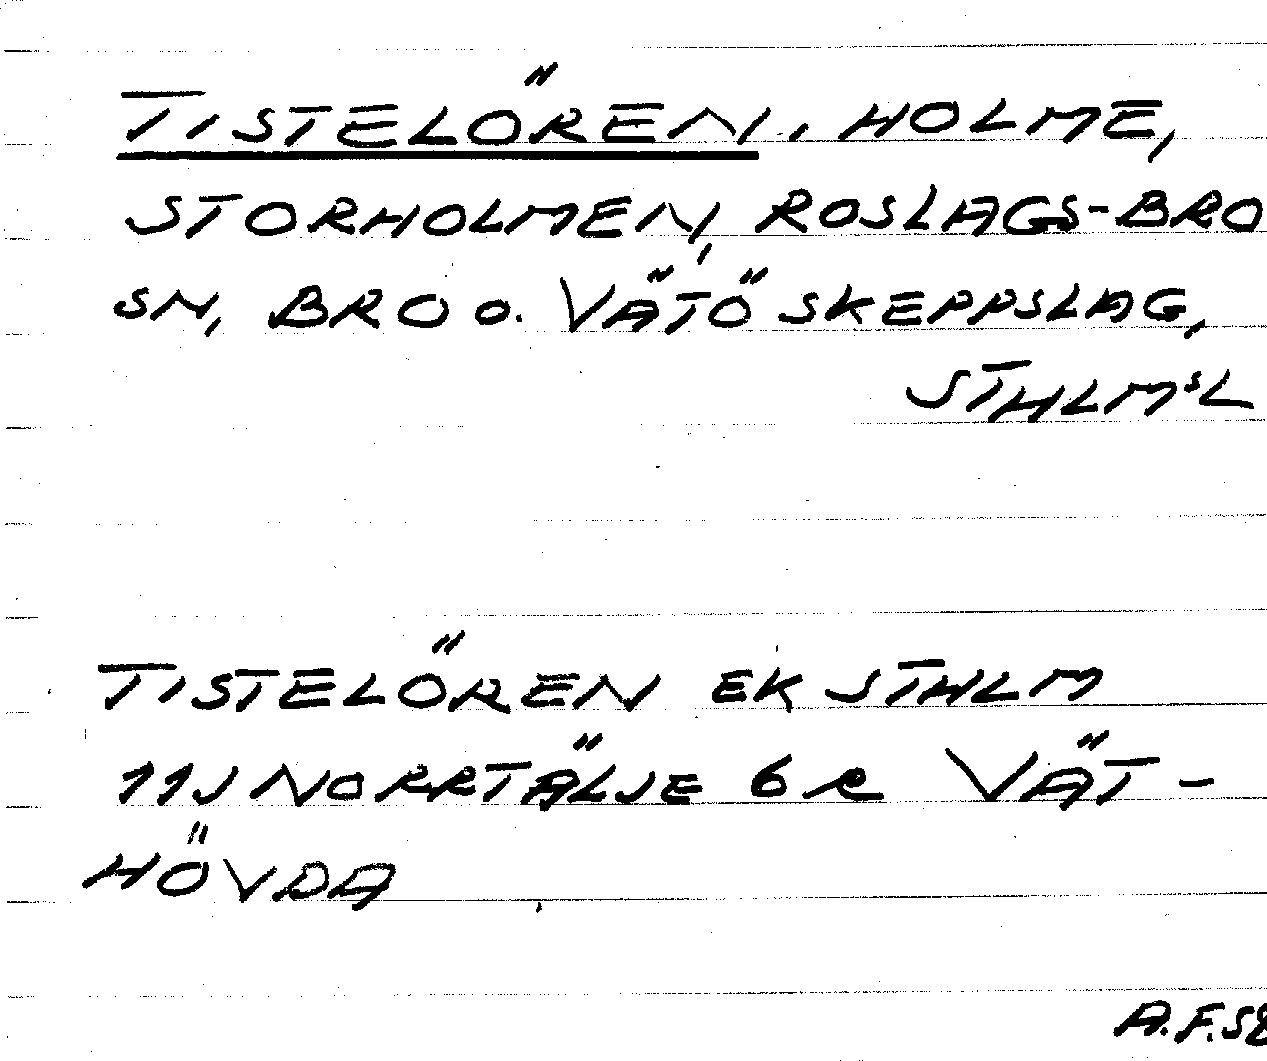 TISTELÖREN, HOLME,
STORHOLMEN, ROSLAGS-BRO
SN, BRO O. VÄTÖ SKEPPSLAG,
STHLMSL
TISTELÖREN EK STHLM
11J NORRTÄLJE 6 R VÄT-
HÖVDA
A.F.58